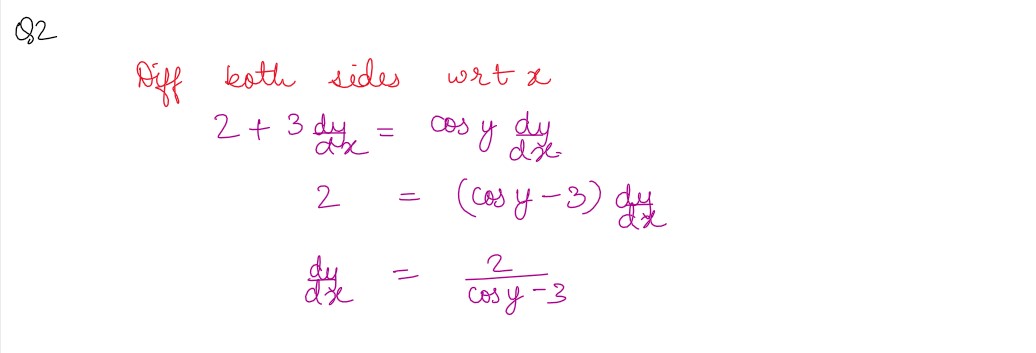 Q2
Diff both sides wrt x
2 + 3 dy/dx = cos y dy/dx.
2 = (cos y - 3) dy/dx
dy/dx = 2/(cos y - 3)